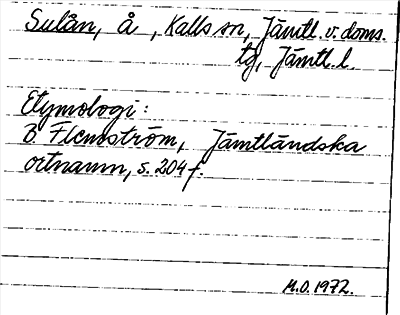 Sulån, å, Kalls sn, Jämtl. v. doms.
tg, Jämtl. l.
Etymologi:
B. Flemström, Jämtländska
ortnamn, s. 204 f.
M.O. 1972.